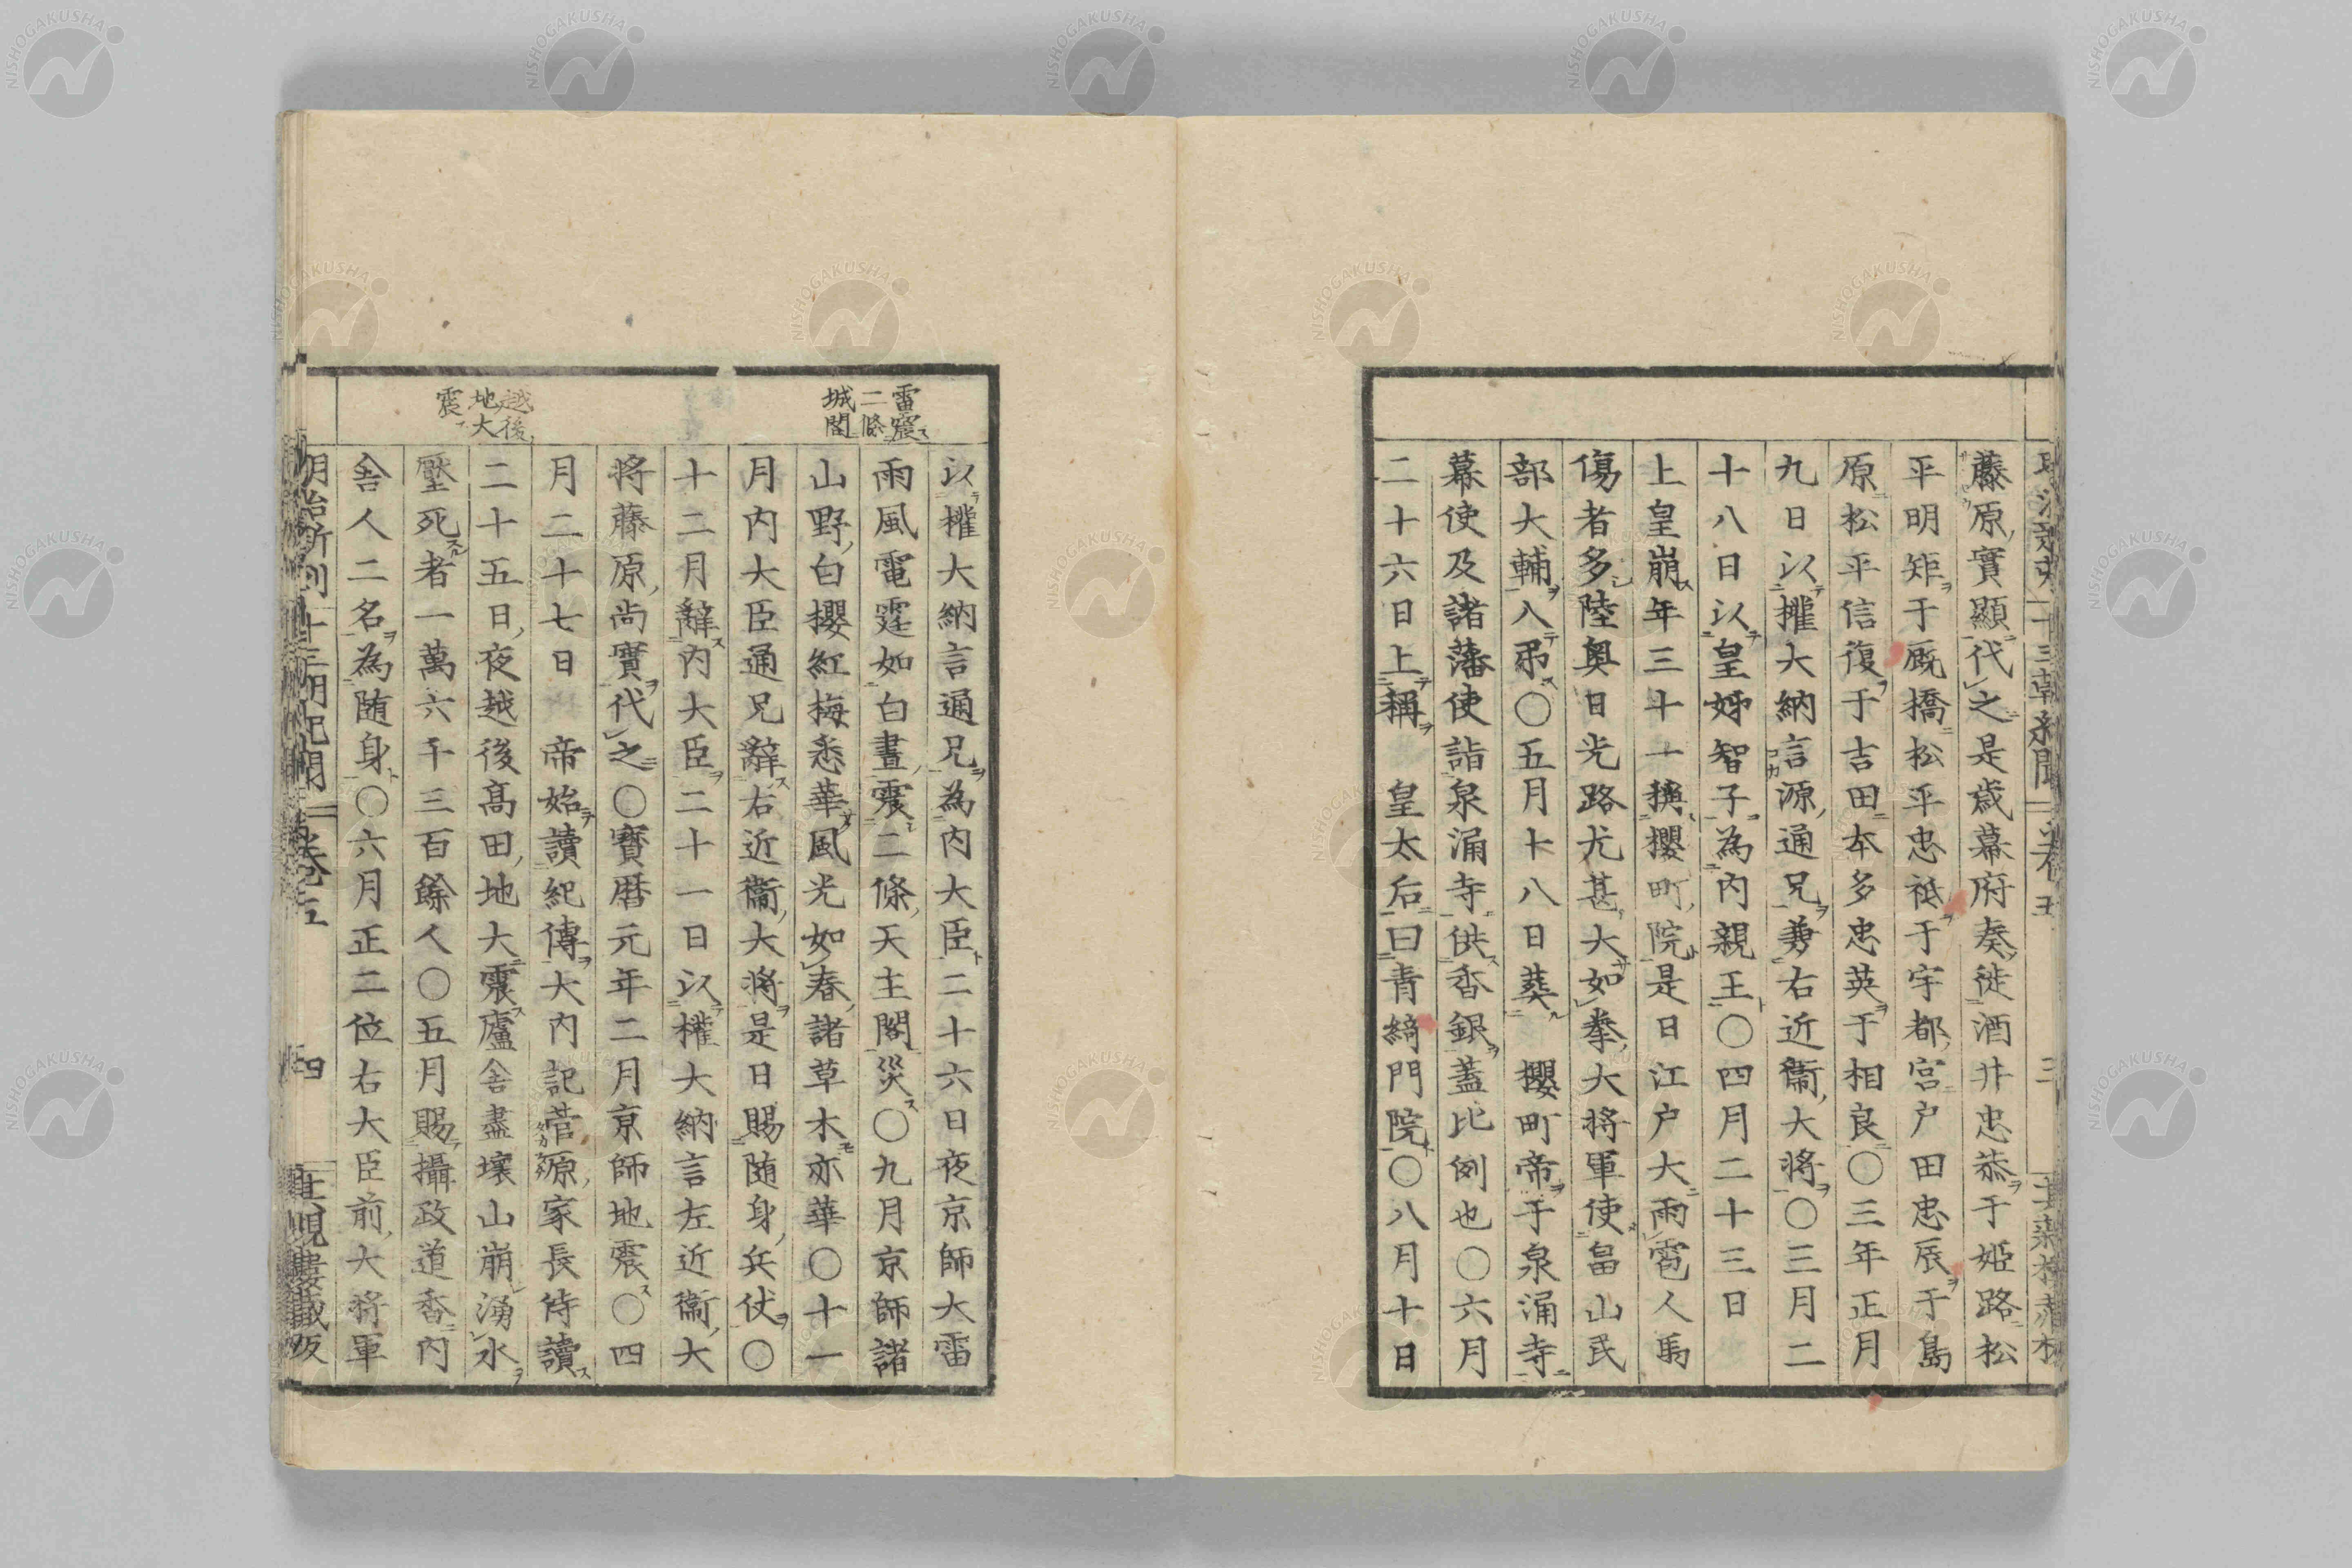 藤原實顯代之是歲幕府奏徙酒井忠恭于姬路松
平明矩于厩橋松平忠祗于宇都宮戶田忠辰于島
原松平信復于吉田本多忠英于相良〇三年正月
九日以權大納言源通兄兼右近衞大將〇三月二
十八日以皇姊智子為內親王〇四月二十三日
上皇崩年三十一號櫻町院是日江戶大雨雹人馬
傷者多陸奧日光路尤甚大如拳大將軍使畠山民
部大輔入弔〇五月十八日葬 櫻町帝于泉涌寺
幕使及諸藩使詣泉涌寺供香銀蓋比例也〇六月
二十六日上稱 皇太后曰青綺門院〇八月十日
雷震
二條
城閣
以權大納言通兄為內大臣二十六日夜京師大雷
雨風電霆如白晝震二條天主閣災〇九月京師諸
山野白櫻紅梅悉華風光如春諸草木亦華〇十一
月內大臣通兄辭右近衞大將是日賜隨身兵仗〇
十二月辭內大臣二十一日以權大納言左近衞大
將藤原尚實代之〇寶曆元年二月京師地震〇四
月二十七日 帝始讀紀傳大內記菅原家長侍讀
越後
地大
震
二十五日夜越後高田地大震廬舍盡壞山崩湧水
壓死者一萬六千三百餘人〇五月賜攝政道香內
舍人二名為隨身〇六月正二位右大臣前大將軍
明治新刻 十三朝紀聞 卷五 四